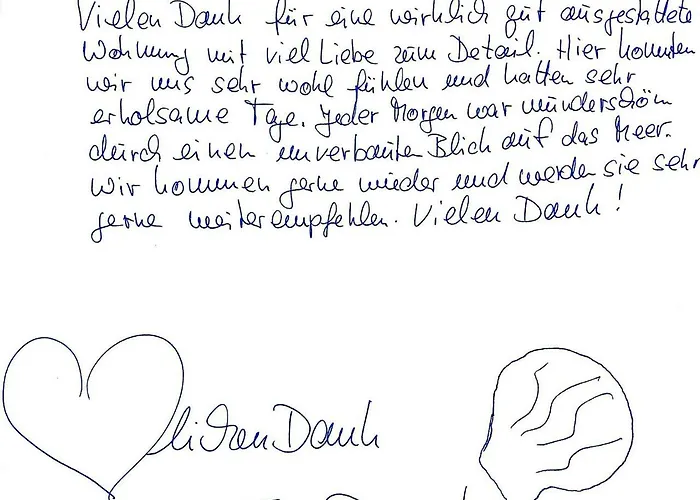 Vielen Dank für eine wirklich gut ausgestattete
Wohnung mit viel Liebe zum Detail. Hier konnten
wir uns sehr wohl fühlen und hatten sehr
erholsame Tage. Jeder Morgen war wunderschön
durch einen unverbauten Blick auf das Meer.
Wir kommen gerne wieder und werden sie sehr
gerne weiterempfehlen. Vielen Dank!
lichen Dank